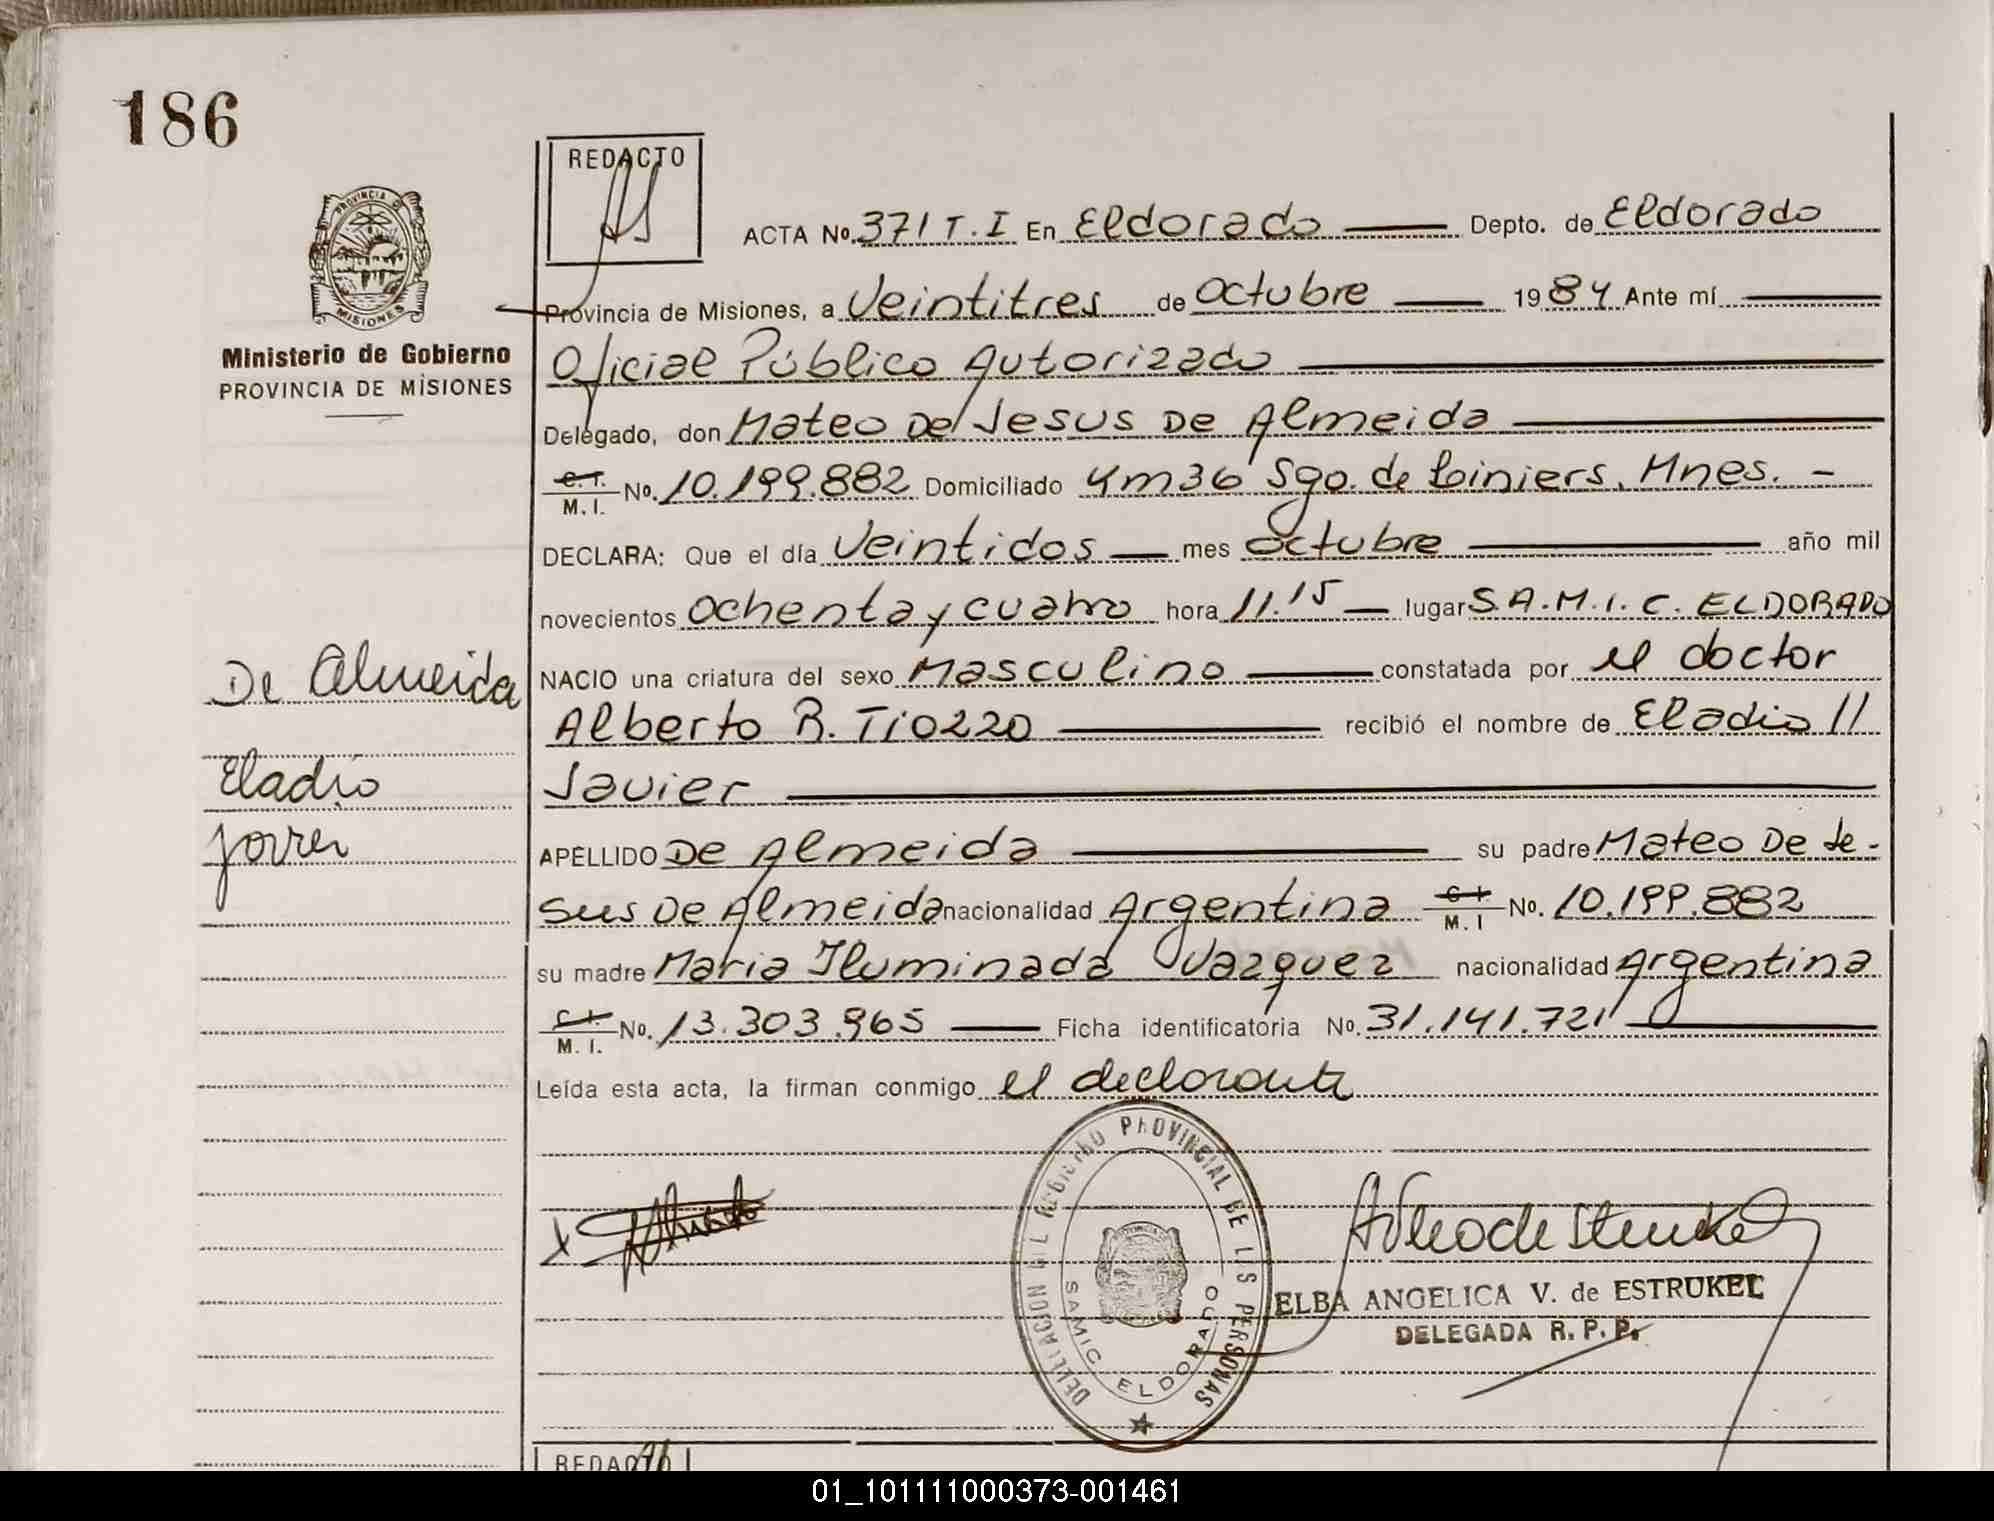 186
REDACTO
PROVINCIA DE
MISIONES
Ministerio de Gobierno
PROVINCIA DE MISIONES
ACTA No. 371 T. I En Eldorado Depto. de Eldorado
Provincia de Misiones, a Veintitres de Octubre 1984 Ante mí
Oficial Público Autorizado
Delegado, don Mateo De Jesus De Almeida
C.I. M.I. No. 10.199.882 Domiciliado Km36 Sgo. de Loiniers. Mnes. -
DECLARA: Que el día Veintidos mes octubre año mil
novecientos Ochenta y cuatro hora 11.15 lugar S.A.M.I.C. ELDORADO
NACIO una criatura del sexo Masculino constatada por el doctor
Alberto R. Tiozzo recibió el nombre de Eladio //
Javier
APELLIDO De Almeida su padre Mateo De Je-
sus De Almeida nacionalidad Argentina C.I. M.I No. 10.199.882
su madre Maria Iluminada Vazquez nacionalidad Argentina
C.I. M.I. No. 13.303.965 Ficha identificatoria No. 31.141.721
Leída esta acta, la firman conmigo el declarante
De Almeida
Eladio
Javier
x
DELEGACION DEL REGISTRO PROVINCIAL DE LAS PERSONAS
SAMIC ELDORADO
ELBA ANGELICA V. de ESTRUKEL
DELEGADA R. P. P.
REDACTO
01_101111000373-001461